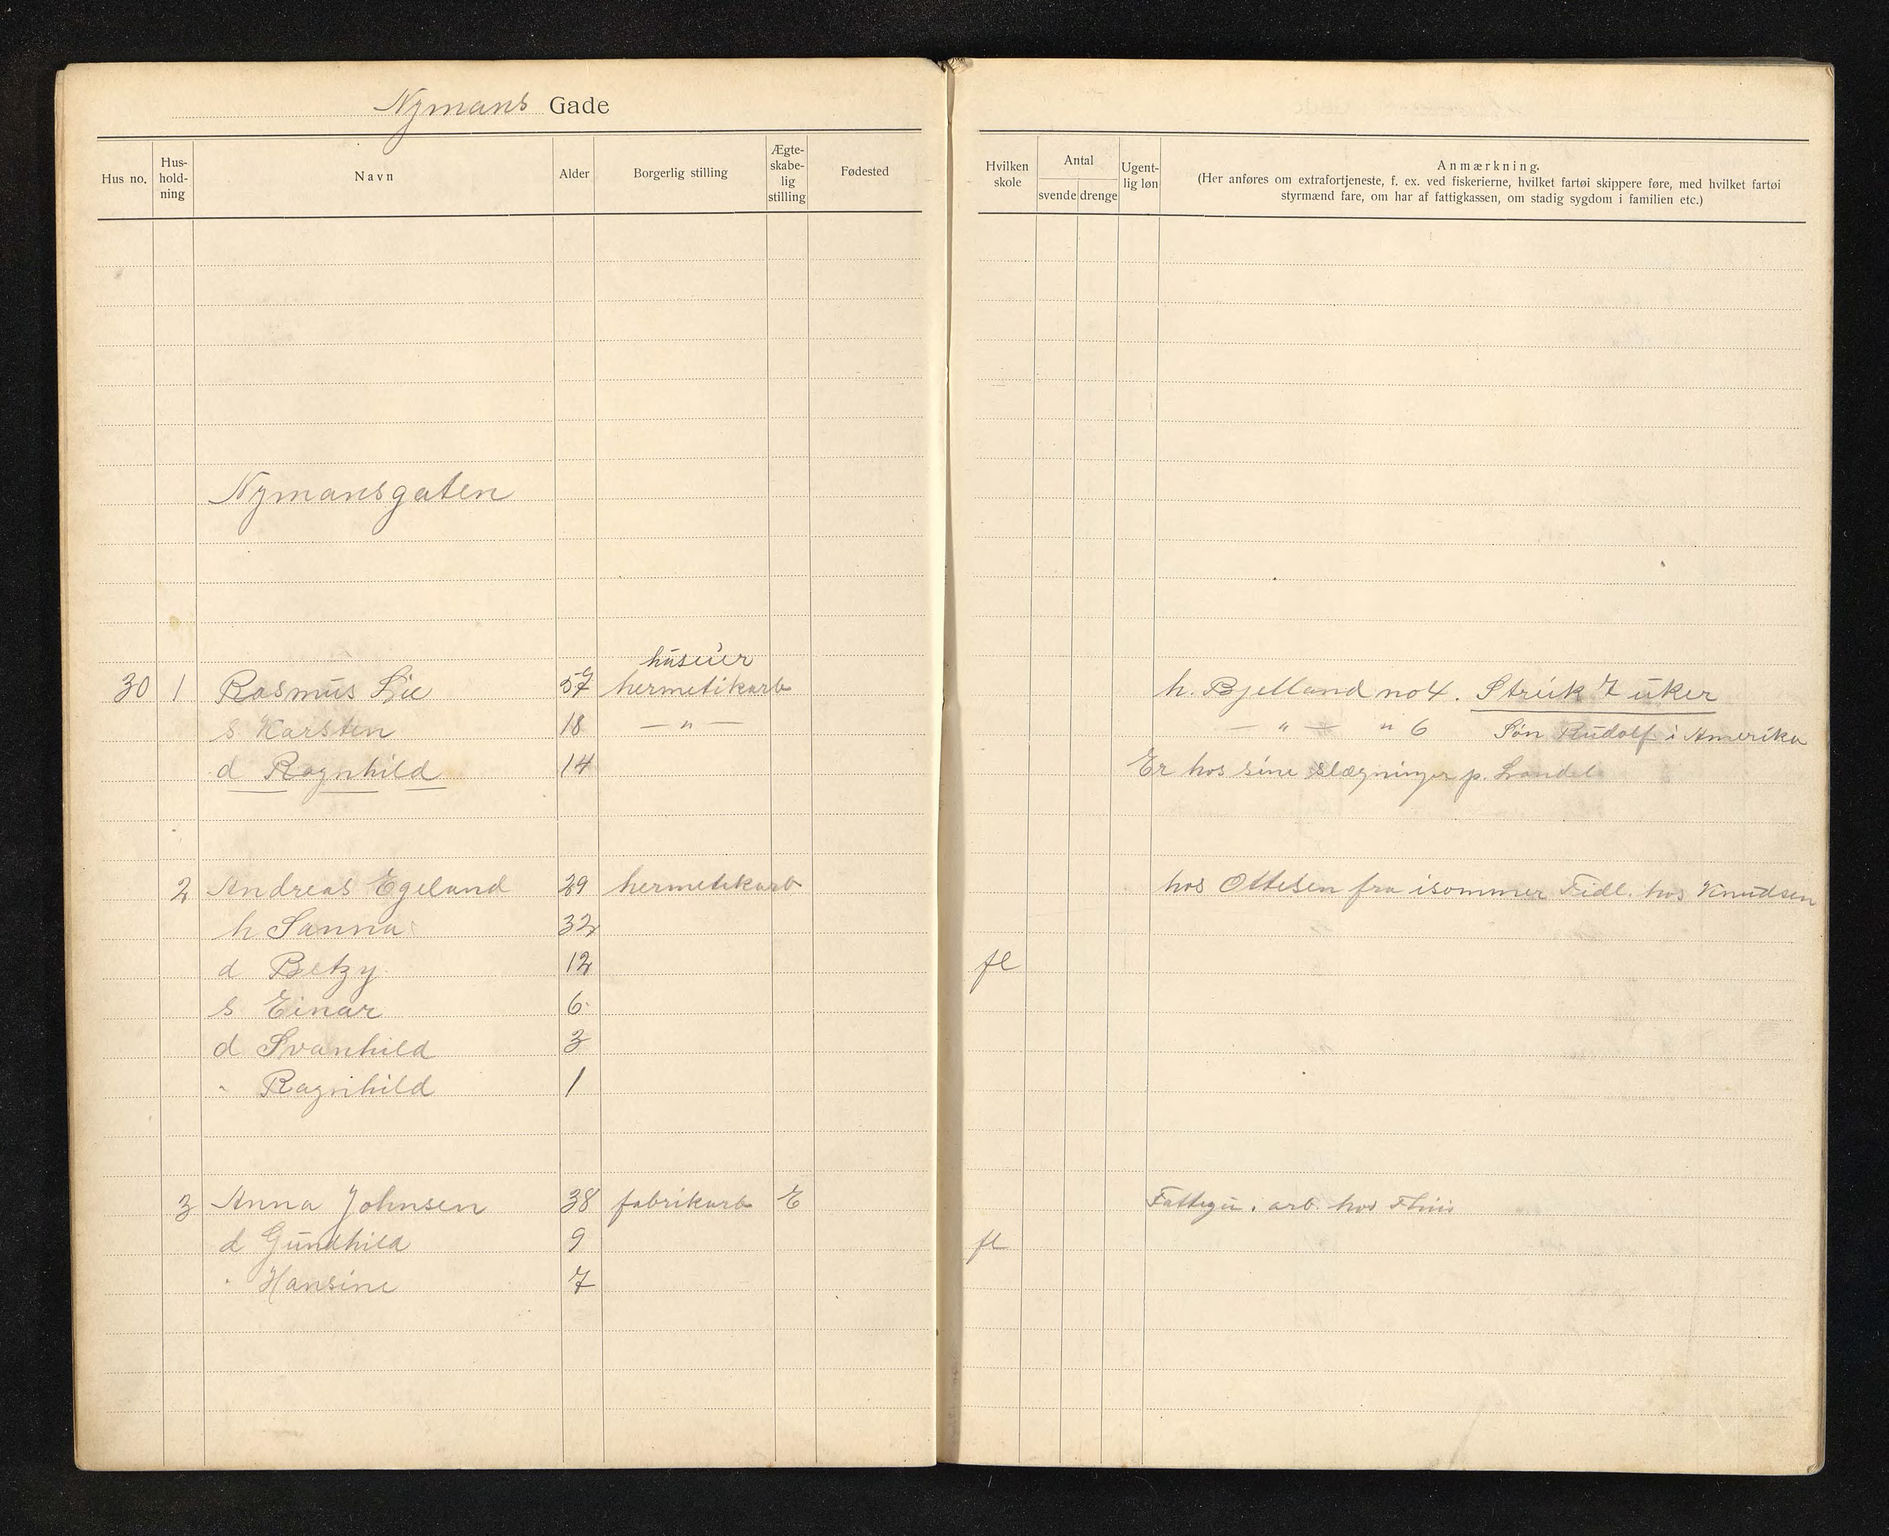 Nymans Gade
Hus no. Hus-hold-ning Navn Alder Borgerlig stilling Ægte-skabe-lig stilling Fødested
Hvilken skole Antal svende drenge Ugent-lig løn Anmærkning.
(Her anføres om extrafortjeneste, f. ex. ved fiskerierne, hvilket fartøi skippere føre, med hvilket fartøi
styrmænd fare, om har af fattigkassen, om stadig sygdom i familien etc.)
Nymansgaten
huseier
30 1 Rasmus Lie 57 hermetikarb h. Bjelland no 4. Streik 7 uker
s Karsten 18 — " — — " — " 6 Søn Rudolf i Amerika
d Ragnhild 14 Er hos sine slægninger p. Landet
2 Andreas Egeland 29 hermetikarb hos Ottesen fra isommer Tidl. hos Knudsen
h Sanna 32
d Betzy 12 fl
s Einar 6
d Svanhild 3
" Ragnhild 1
3 Anna Johnsen 38 fabrikarb E arb. hos
d Gundhild 9 fl
" Hansine 7